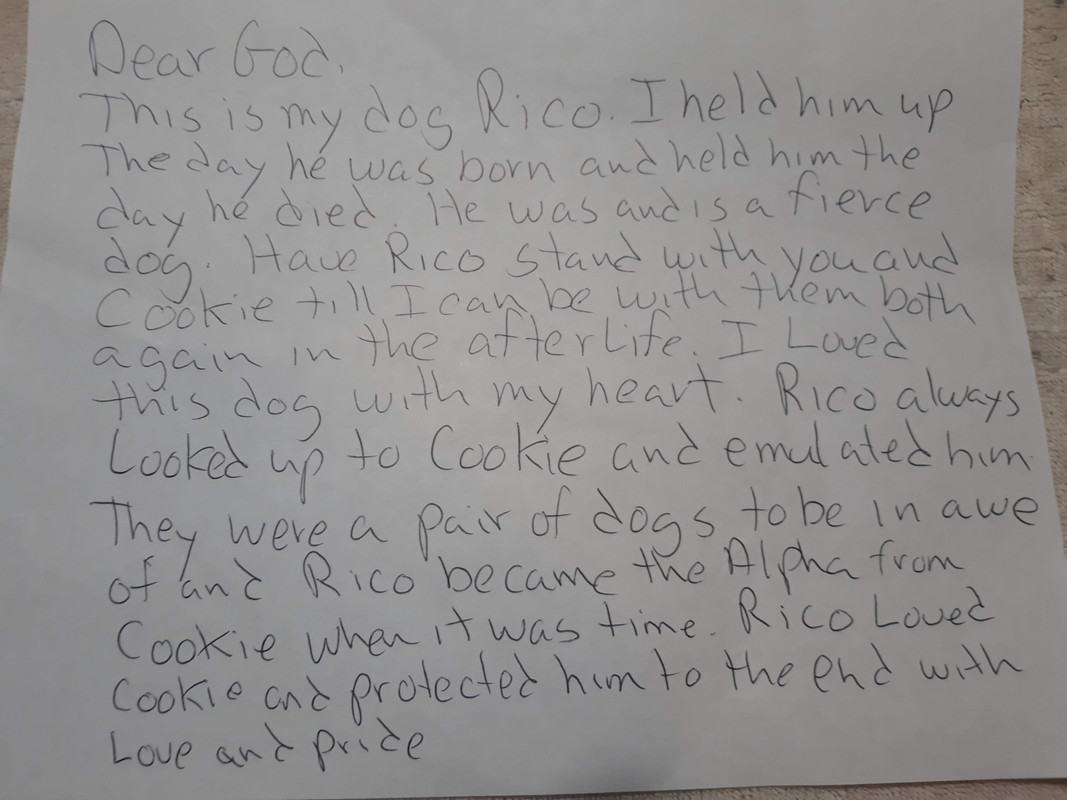 Dear God,
This is my dog Rico. I held him up
The day he was born and held him the
day he died. He was and is a fierce
dog. Have Rico stand with you and
Cookie till I can be with them both
again in the afterLife. I Loved
this dog with my heart. Rico always
Looked up to Cookie and emulated him.
They were a pair of dogs to be in awe
of and Rico became the Alpha from
Cookie when it was time. Rico Loved
Cookie and protected him to the end with
Love and pride